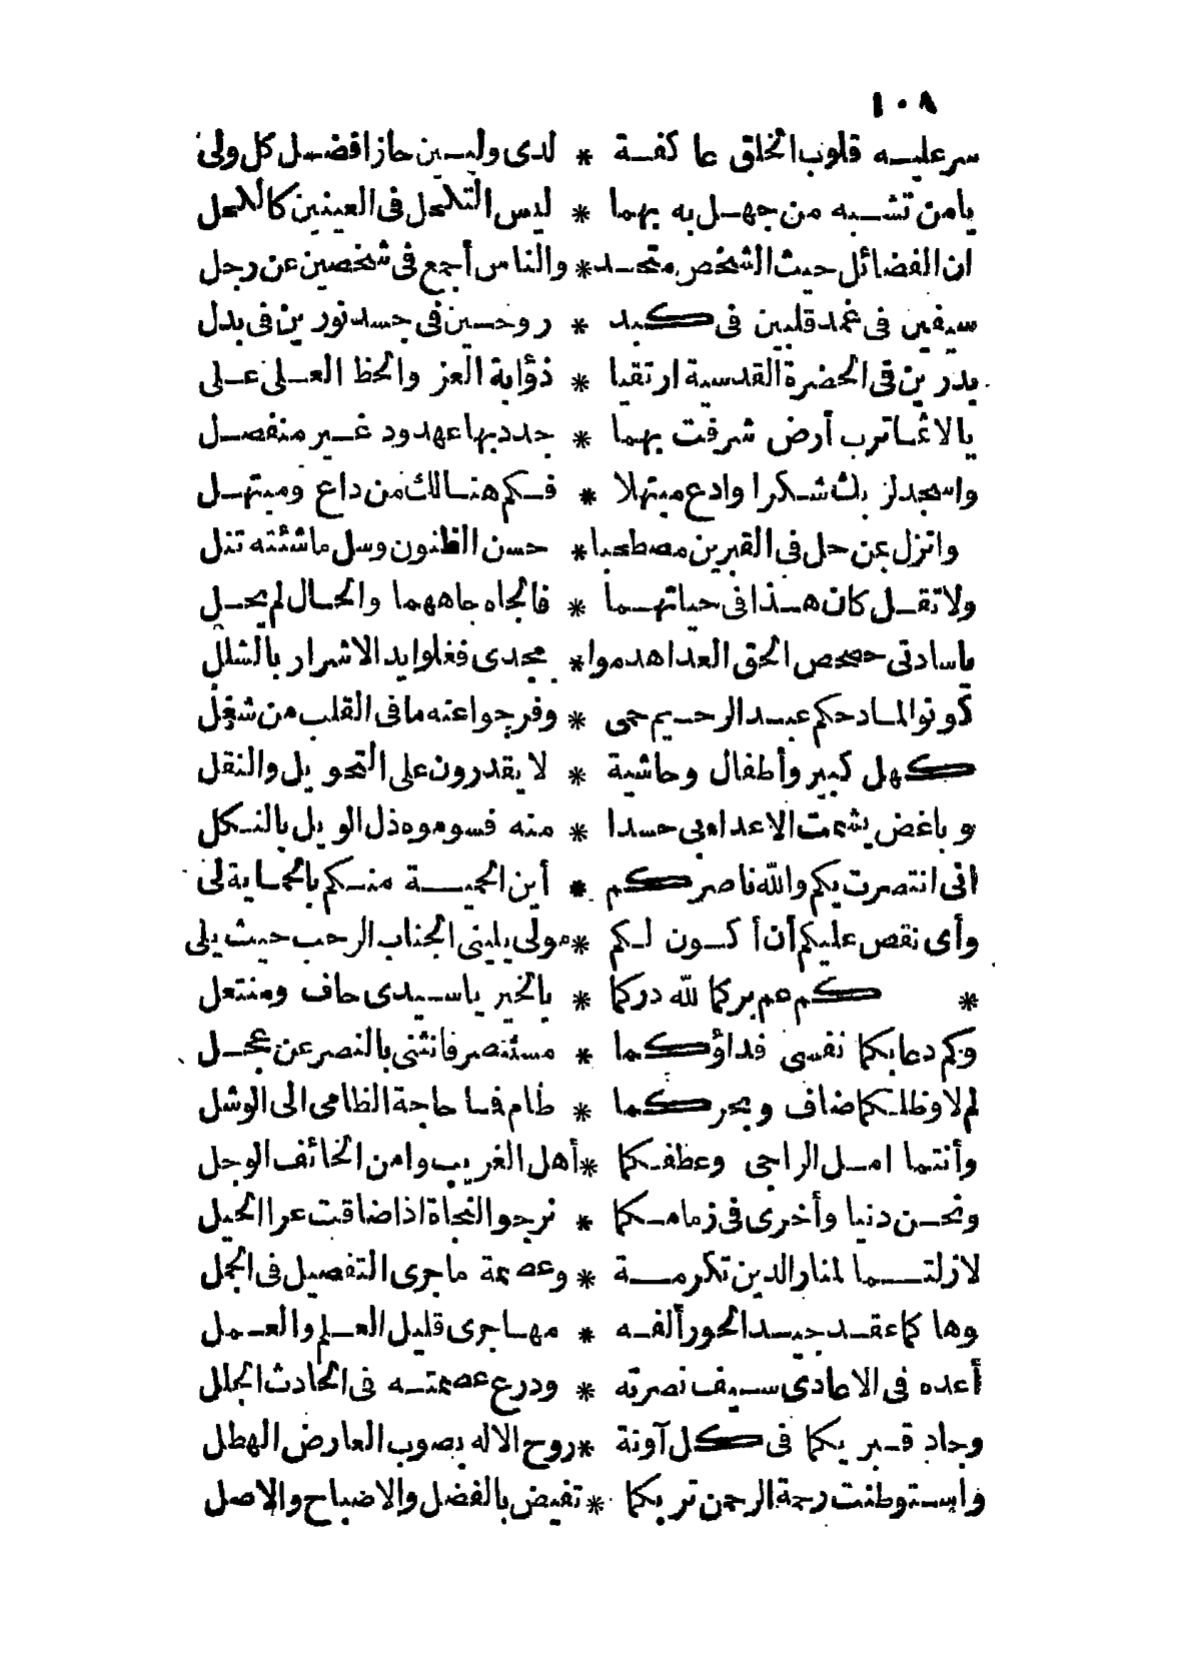 ١٠٨
سر عليه قلوب الخلق عاكفة * لدى وليين حازا فضل كل ولى
يا من تشبه من جهل به بهما * ليس التكحل فى العينين كالكحل
ان الفضائل حيث الشخص متحد * والناس أجمع فى شخصين عن رجل
سيفين فى غمد قلبين فى كبد * روحين فى جسد نورين فى بدل
بدرين فى الحضرة القدسية ارتقيا * ذؤابة العز والحظ العلى على
يا لاثما ترب أرض شرفت بهما * جدد بها عهدود غير منفصل
واسجد لربك شكرا وادع مبتهلا * فكم هنالك من داع ومبتهل
وانزل بمن حل فى القبرين مصطحبا * حسن الظنون وسل ما شئته تنل
ولا تقل كان هذا فى حياتهما * فالجاه جاههما والحال لم يحل
يا سادتى حصحص الحق العدا هدموا * مجدى فغلوا يد الاشرار بالشلل
كونوا لمادحكم عبد الرحيم حمى * وفرجوا عنه ما فى القلب من شغل
كهل كبير وأطفال وحاشية * لا يقدرون على التحويل والنقل
وباغض يشمت الاعداء بى حسدا * منه فسوموه ذل الويل بالنكل
انى انتصرت بكم والله ناصركم * أين الحمية منكم بالحماية لى
وأى نقص عليكم أن أكون لكم * مولى يلينى الجناب الرحب حيث يلى
* كم عم بركما لله دركما * بالخير يا سيدى حاف ومنتعل
وكم دعا بكما نفسى فداؤكما * مستنصر فانثنى بالنصر عن عجل
لم لا وظلكما ضاف وبحركما * طام فما حاجة الظامى الى الوشل
وأنتما امل الراجى وعطفكما * أهل الغريب وامن الخائف الوجل
ونحن دنيا وأخرى فى زمامكما * نرجو النجاة اذا ضاقت عرا الحيل
لا زلتما لمنار الدين تكرمة * وعصمة ما جرى التفصيل فى الجمل
وها كما عقد جيد الحور ألفه * مهاجرى قليل العلم والعمل
أعده فى الاعادى سيف نصرته * ودرع عصمته فى الحادث الجلل
وجاد قبريكما فى كل آونة * روح الاله بصوب العارض الهطل
واستوطنت رحمة الرحمن تربكما * تفيض بالفضل والاضباح والاصل